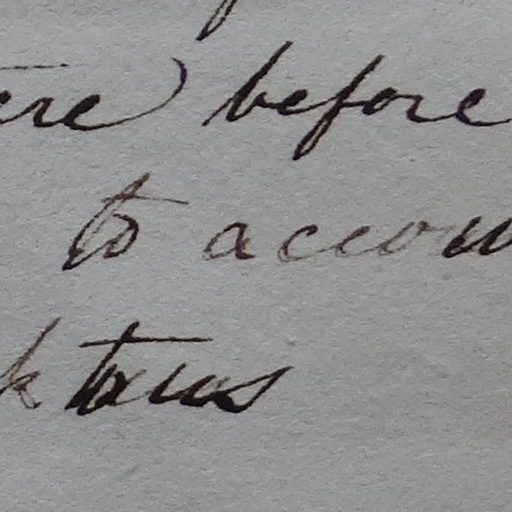 ere) before
to accou
k